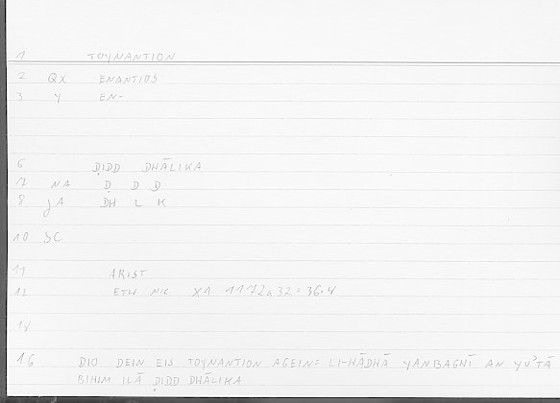 1 TOYNANTION
2 QX ENANTIOS
3 Y EN-
6 ḌIDD DHĀLIKA
7 NA Ḍ D D
8 JA DH L K
10 SC
11 ARIST
12 ETH NIC X1 1172a32 = 36.4
14
16 DIO DEIN EIS TOYNANTION AGEIN = LI-HĀDHĀ YANBAGHĪ AN YU'TĀ
BIHIM ILĀ ḌIDD DHĀLIKA